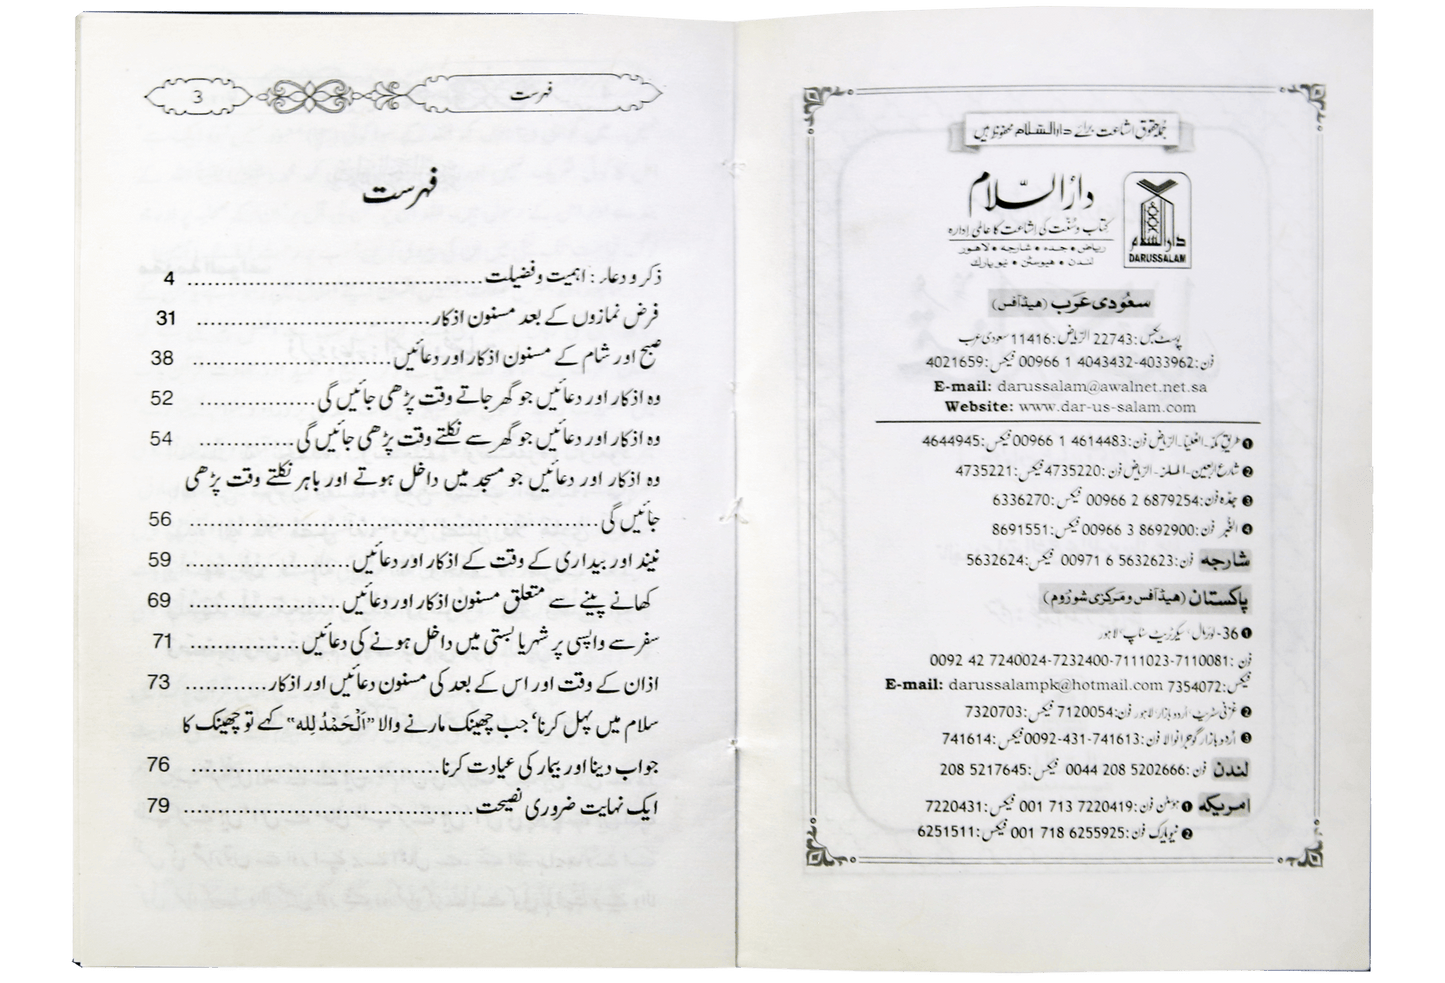 جملہ حقوق اشاعت برائے دارالسلام محفوظ ہیں
دارالسلام
کتاب و سنت کی اشاعت کا عالمی ادارہ
ریاض • جدہ • شارجہ • لاہور
لندن • ہیوسٹن • نیویارک
دارالسلام
DARUSSALAM
سعودی عرب (ہیڈآفس)
پوسٹ بکس: 22743 الریاض: 11416 سعودی عرب
فون: 00966 1 4043432-4033962 فیکس: 4021659
E-mail: darussalam@awalnet.net.sa
Website: www.dar-us-salam.com
❶ طریق مکہ۔ العلیا۔ الریاض فون: 00966 1 4614483 فیکس: 4644945
❷ شارع اربعین۔ الملز۔ الریاض فون: 4735220 فیکس: 4735221
❸ جدہ فون: 00966 2 6879254 فیکس: 6336270
❹ الخبر فون: 00966 3 8692900 فیکس: 8691551
شارجہ فون: 00971 6 5632623 فیکس: 5632624
پاکستان (ہیڈآفس و مرکزی شوروم)
❶ 36- لوئرمال، سیکرٹریٹ سٹاپ، لاہور
فون: 0092 42 7240024-7232400-7111023-7110081
فیکس: 7354072 E-mail: darussalampk@hotmail.com
❷ غزنی سٹریٹ، اردو بازار، لاہور فون: 7120054 فیکس: 7320703
❸ اردو بازار گوجرانوالا فون: 0092-431-741613 فیکس: 741614
لندن فون: 0044 208 5202666 فیکس: 208 5217645
امریکہ ❶ ہوسٹن فون: 001 713 7220419 فیکس: 7220431
❷ نیویارک فون: 001 718 6255925 فیکس: 6251511
فہرست 3
فہرست
ذکر و دعاء: اہمیت و فضیلت .......... 4
فرض نمازوں کے بعد مسنون اذکار .......... 31
صبح اور شام کے مسنون اذکار اور دعائیں .......... 38
وہ اذکار اور دعائیں جو گھر جاتے وقت پڑھی جائیں گی .......... 52
وہ اذکار اور دعائیں جو گھر سے نکلتے وقت پڑھی جائیں گی .......... 54
وہ اذکار اور دعائیں جو مسجد میں داخل ہوتے اور باہر نکلتے وقت پڑھی
جائیں گی .......... 56
نیند اور بیداری کے وقت کے اذکار اور دعائیں .......... 59
کھانے پینے سے متعلق مسنون اذکار اور دعائیں .......... 69
سفر سے واپسی پر شہر یا بستی میں داخل ہونے کی دعائیں .......... 71
اذان کے وقت اور اس کے بعد کی مسنون دعائیں اور اذکار .......... 73
سلام میں پہل کرنا، جب چھینک مارنے والا ”اَلْحَمْدُ لِلہ“ کہے تو چھینک کا
جواب دینا اور بیمار کی عیادت کرنا .......... 76
ایک نہایت ضروری نصیحت .......... 79